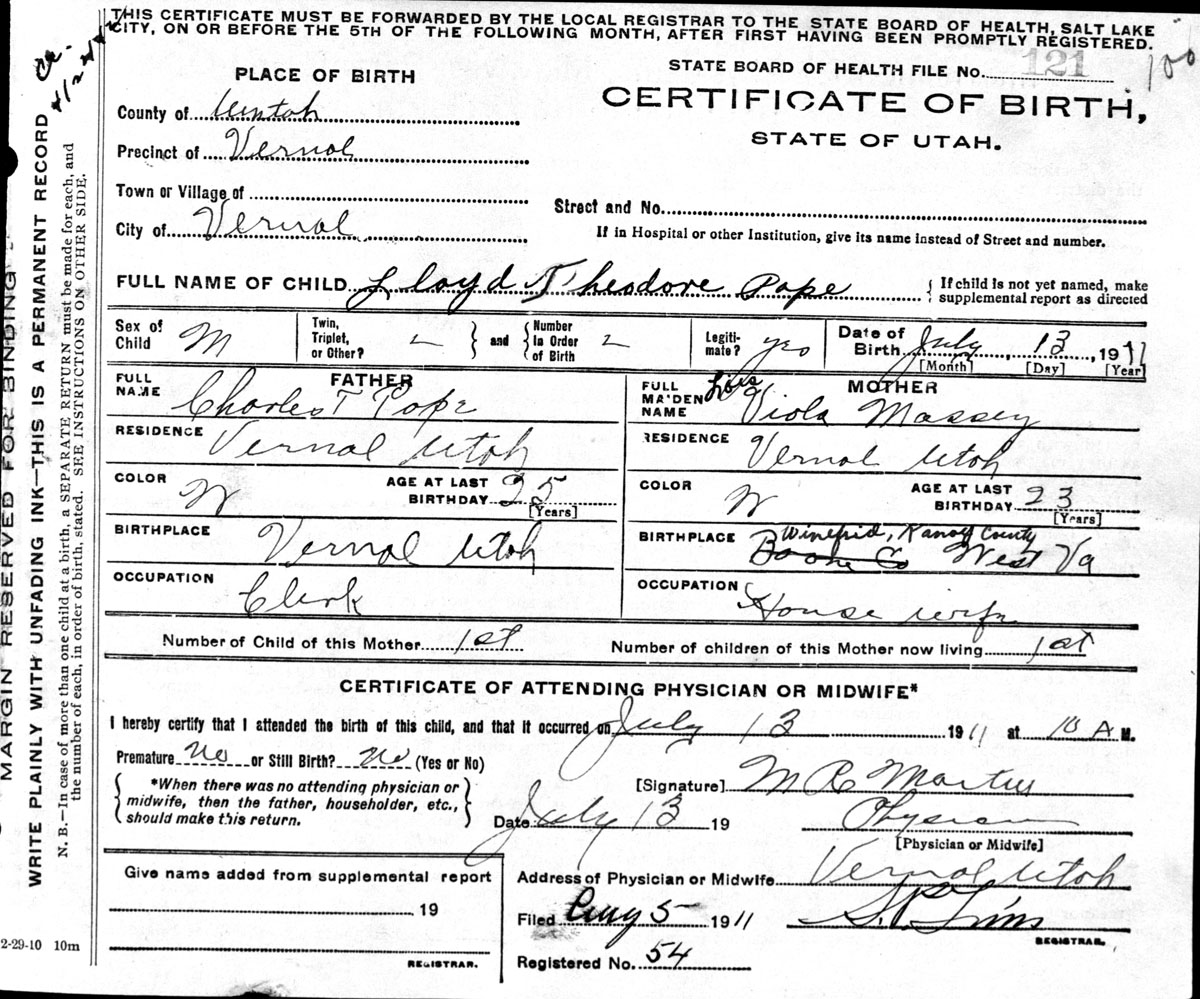 THIS CERTIFICATE MUST BE FORWARDED BY THE LOCAL REGISTRAR TO THE STATE BOARD OF HEALTH, SALT LAKE
CITY, ON OR BEFORE THE 5TH OF THE FOLLOWING MONTH, AFTER FIRST HAVING BEEN PROMPTLY REGISTERED.
PLACE OF BIRTH
STATE BOARD OF HEALTH FILE No. 121
100
County of Uintah
CERTIFICATE OF BIRTH,
STATE OF UTAH.
Precinct of Vernal
Town or Village of
City of Vernal
Street and No.
If in Hospital or other Institution, give its name instead of Street and number.
FULL NAME OF CHILD Lloyd Theodore Pope
{ If child is not yet named, make
supplemental report as directed
Sex of
Child M
Twin,
Triplet,
or Other?
} and {
Number
In Order
of Birth
Legiti-
mate? yes
Date of
Birth July 13, 1911
[Month] [Day] [Year]
FATHER
FULL
NAME Charles T Pope
MOTHER
FULL
MAIDEN
NAME Lois Viola Massey
RESIDENCE Vernal Utah
RESIDENCE Vernal Utah
COLOR W
AGE AT LAST
BIRTHDAY 25
[Years]
COLOR W
AGE AT LAST
BIRTHDAY 23
[Years]
BIRTHPLACE Vernal Utah
BIRTHPLACE Winefrid, Kanoy County
Boone Co West Va
OCCUPATION Clerk
OCCUPATION House wife
Number of Child of this Mother 1st
Number of children of this Mother now living 1st
CERTIFICATE OF ATTENDING PHYSICIAN OR MIDWIFE*
I hereby certify that I attended the birth of this child, and that it occurred on July 13 1911 at 10 A M.
Premature No or Still Birth? No (Yes or No)
{ *When there was no attending physician or
midwife, then the father, householder, etc.,
should make this return. }
[Signature] M R
Date July 13 19
Physician
[Physician or Midwife]
Give name added from supplemental report
19
REGISTRAR.
Address of Physician or Midwife Vernal Utah
Filed Aug 5 1911
REGISTRAR.
Registered No. 54
MARGIN RESERVED FOR BINDING
WRITE PLAINLY WITH UNFADING INK—THIS IS A PERMANENT RECORD
N. B.—In case of more than one child at a birth, a SEPARATE RETURN must be made for each, and
the number of each, in order of birth, stated. SEE INSTRUCTIONS ON OTHER SIDE.
2-29-10 10m